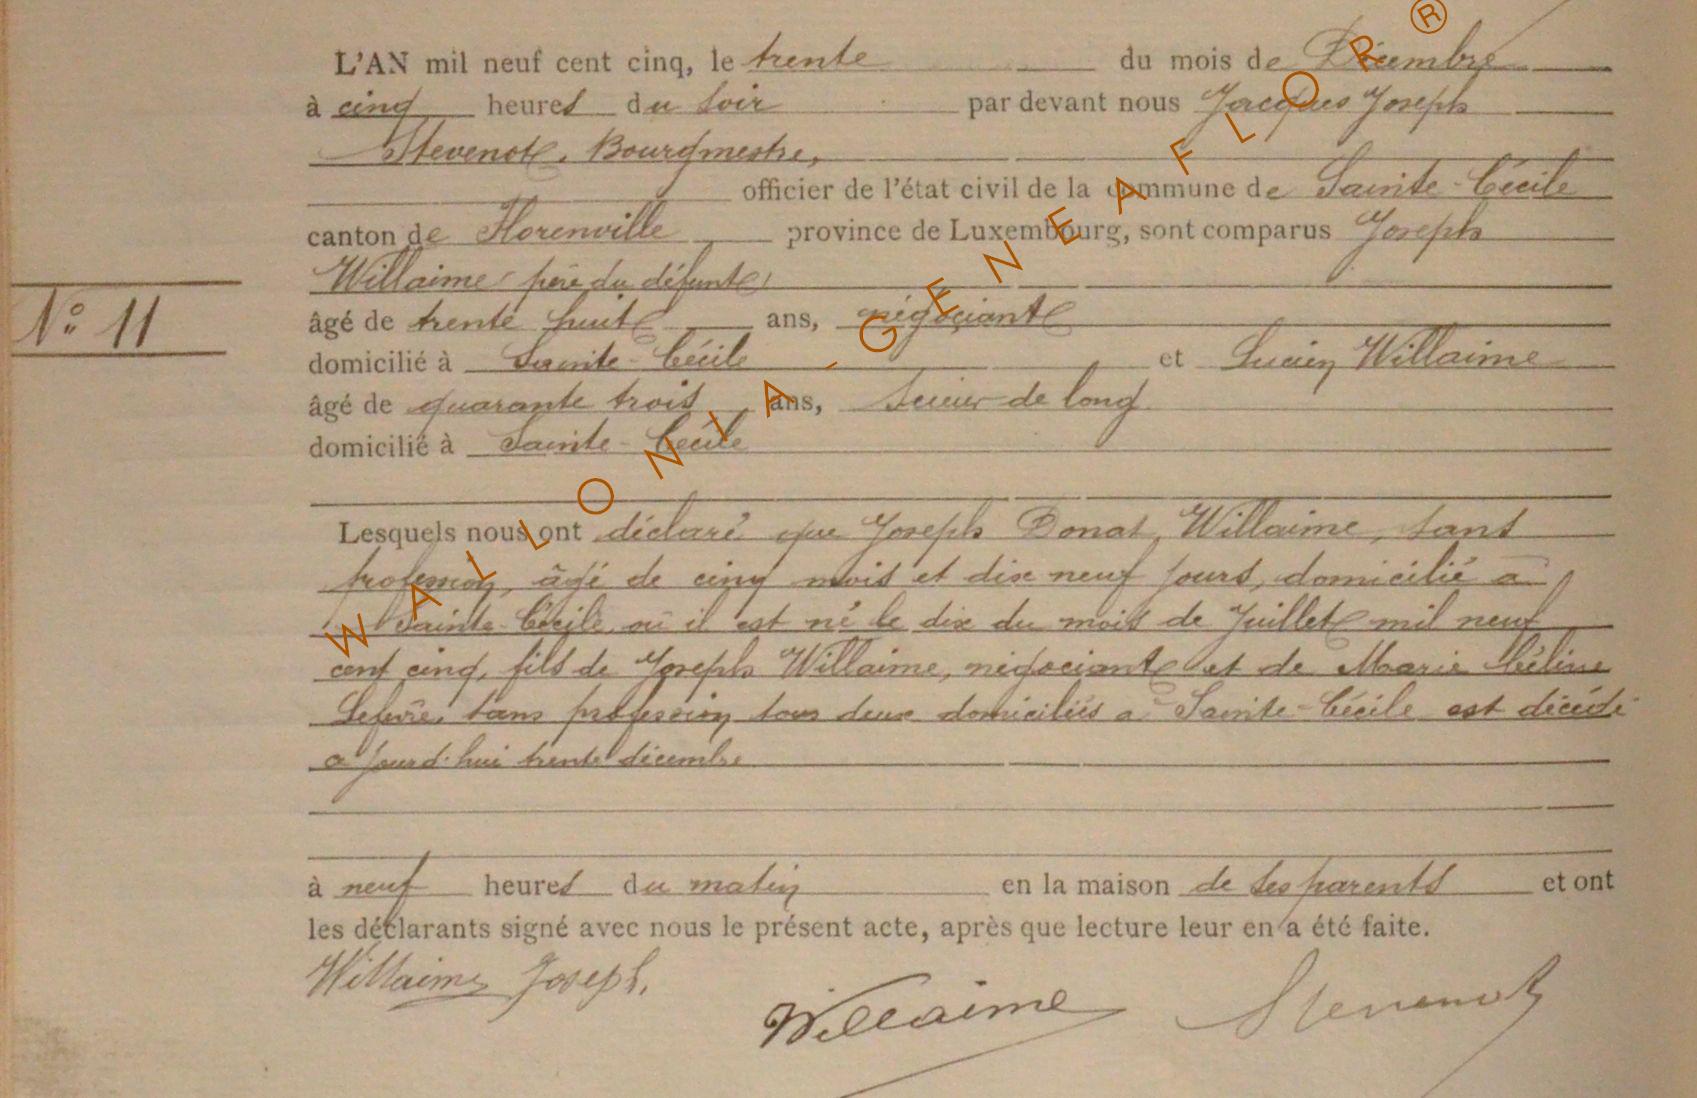 L'AN mil neuf cent cinq, le trente du mois de Décembre
à cinq heures du soir par devant nous Jacques Joseph
Stevenot, Bourgmestre,
officier de l'état civil de la commune de Sainte-Cécile
canton de Florenville province de Luxembourg, sont comparus Joseph
Willaime (père du défunt)
âgé de trente huit ans, négociant
N° 11
domicilié à Sainte-Cécile et Lucien Willaime
âgé de quarante trois ans, scieur de long
domicilié à Sainte-Cécile
Lesquels nous ont déclaré que Joseph Donat Willaime, sans
profession, âgé de cinq mois et dix neuf jours, domicilié à
Sainte-Cécile où il est né le dix du mois de Juillet mil neuf
cent cinq, fils de Joseph Willaime, négociant et de Marie Céline
Lefèvre, sans profession tous deux domiciliés à Sainte-Cécile est décédé
a jourd'hui trente décembre
à neuf heures du matin en la maison de ses parents et ont
les déclarants signé avec nous le présent acte, après que lecture leur en a été faite.
Willaime Joseph.
Willaime
Stevenot
WALLONIA-GENEAFLOR ®